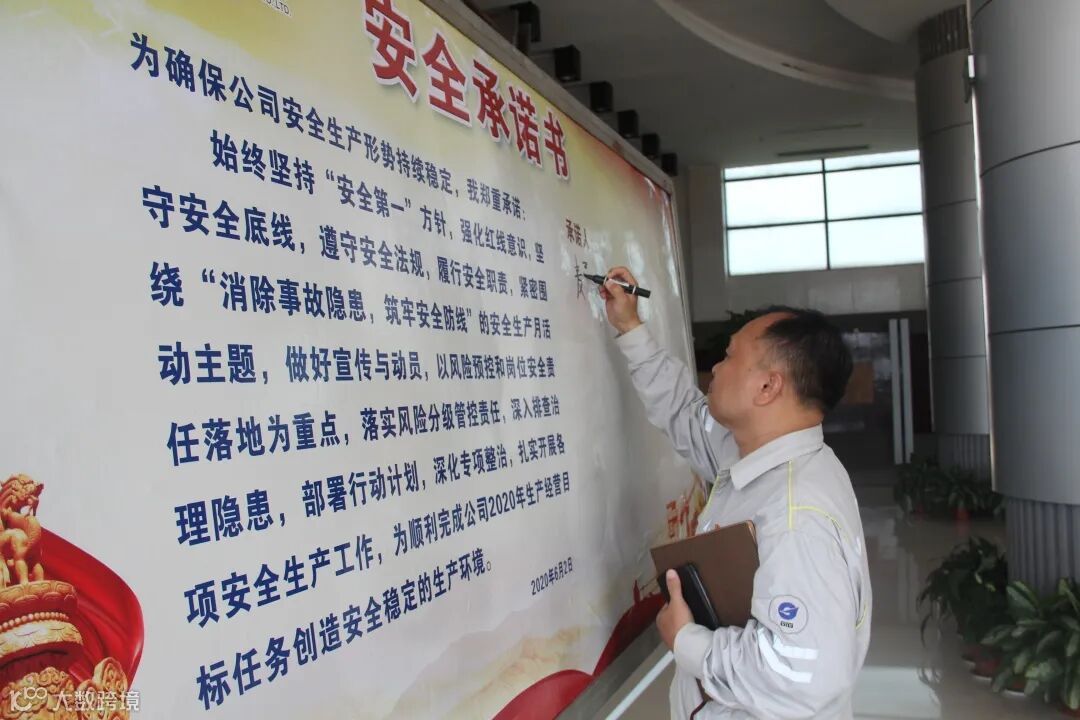 CO.,LTD.
安全承诺书
为确保公司安全生产形势持续稳定，我郑重承诺：
始终坚持“安全第一”方针，强化红线意识，坚
守安全底线，遵守安全法规，履行安全职责，紧密围
绕“消除事故隐患，筑牢安全防线”的安全生产月活
动主题，做好宣传与动员，以风险预控和岗位安全责
任落地为重点，落实风险分级管控责任，深入排查治
理隐患，部署行动计划，深化专项整治，扎实开展各
项安全生产工作，为顺利完成公司2020年生产经营目
标任务创造安全稳定的生产环境。
2020年6月2日
承诺人
大数跨境